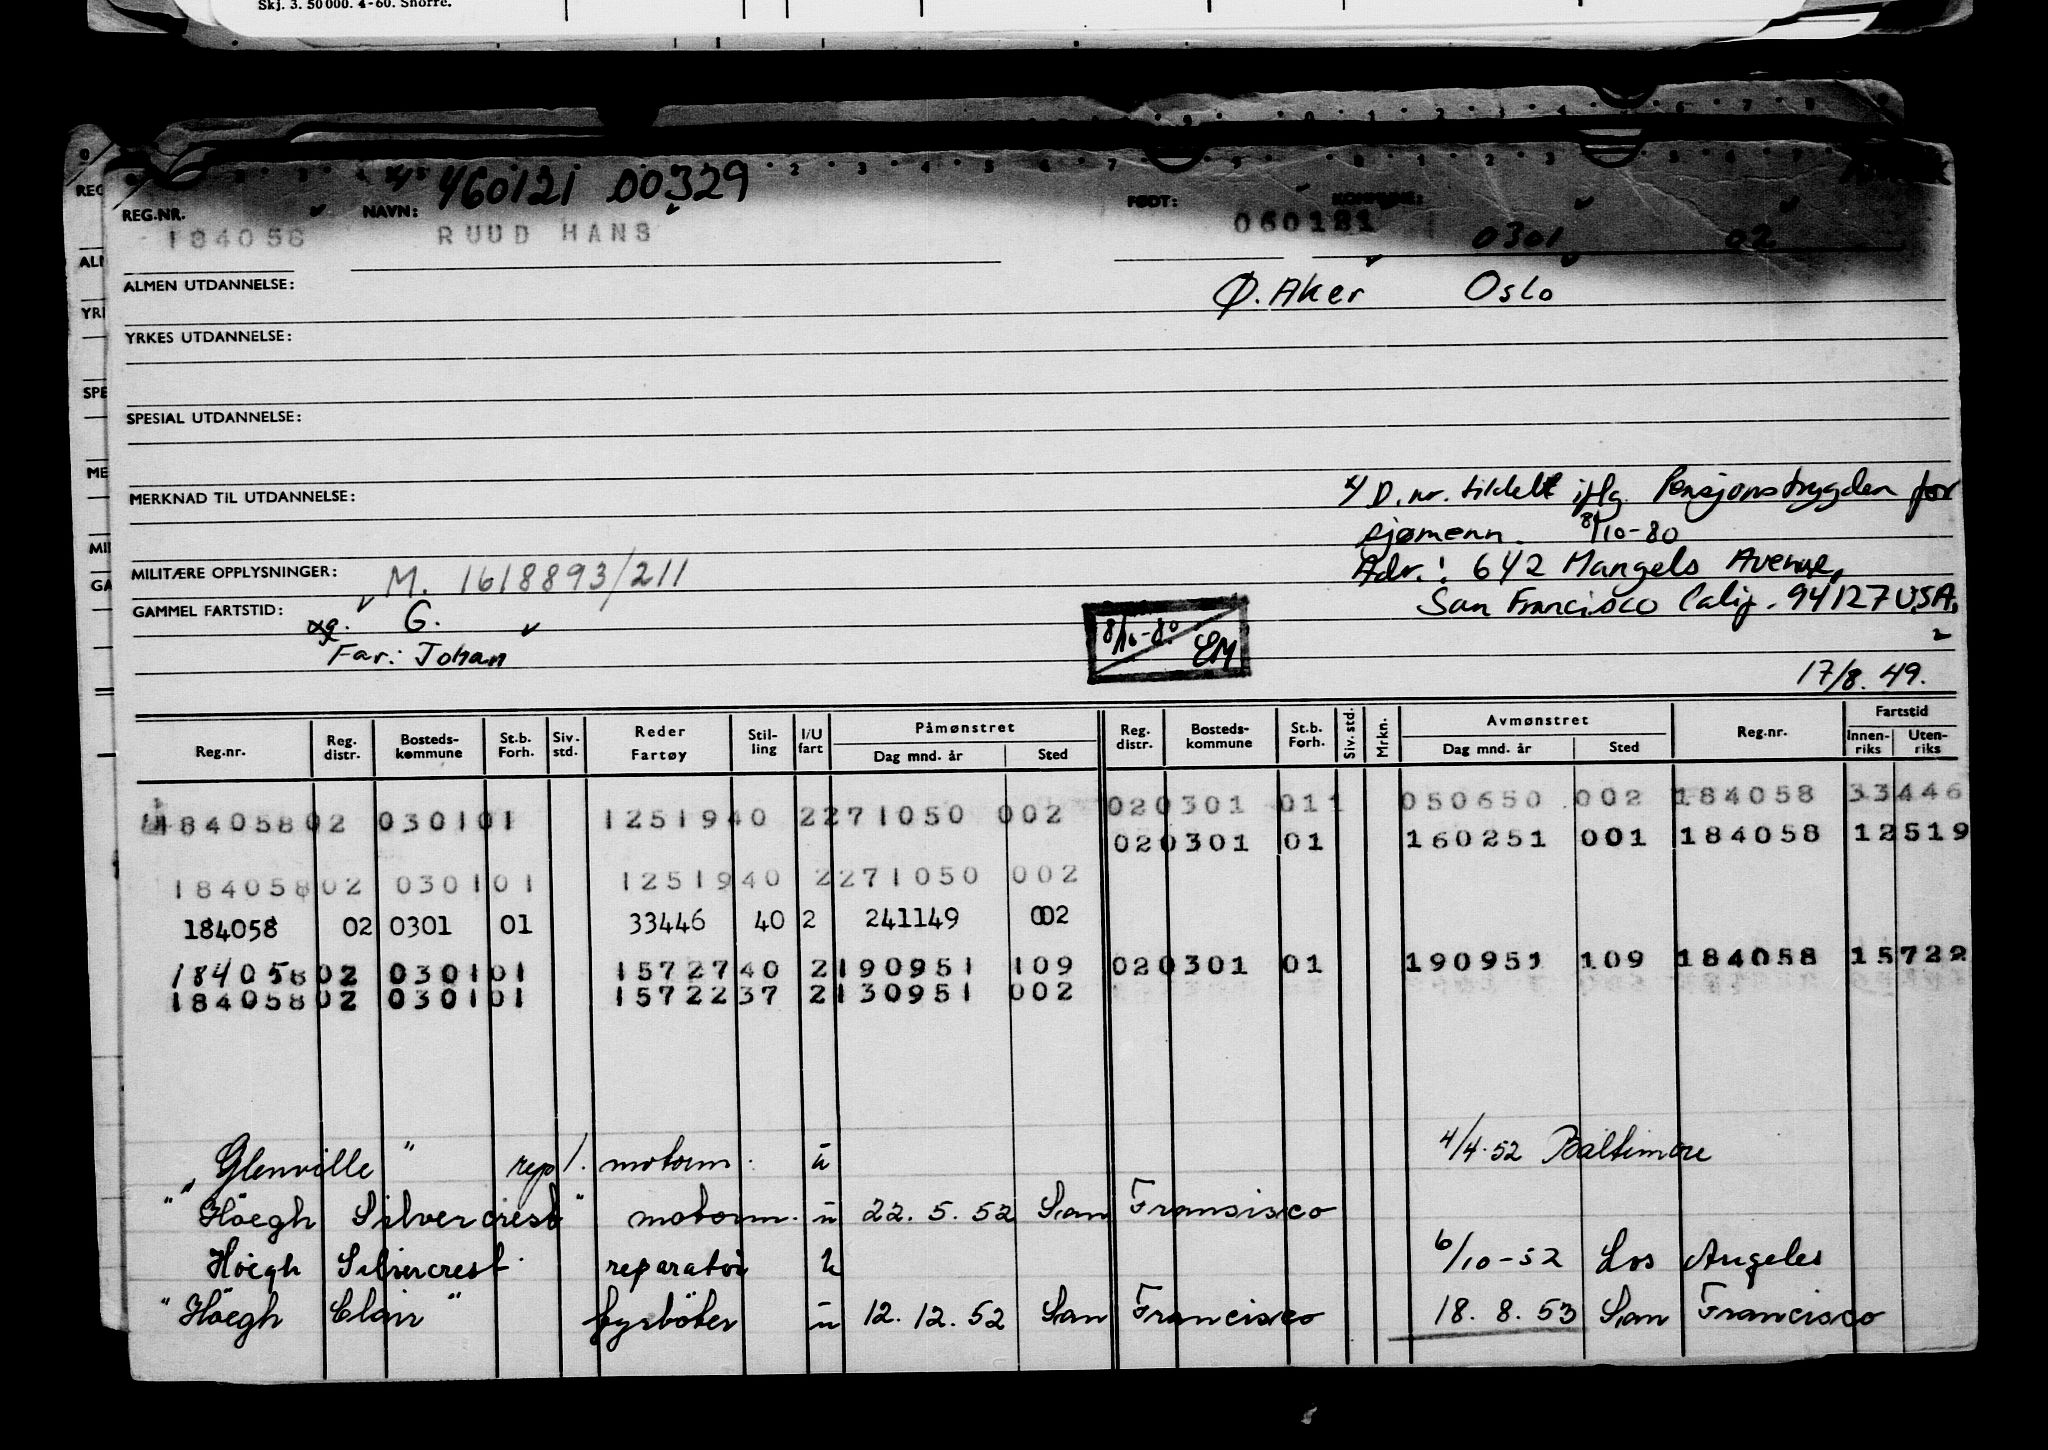 Skj. 3. 50 000. 4-60. Snorre.
x) 460121 00329
REG.NR. NAVN: FØDT: KOMMUNE:
184058 RUUD HANS 060121 0301 02
ALMEN UTDANNELSE: Ø. Aker Oslo
YRKES UTDANNELSE:
SPESIAL UTDANNELSE:
MERKNAD TIL UTDANNELSE: x) D.nr. tildelt iflg. Pensjonstrygden for
sjømenn. 8/10-80
MILITÆRE OPPLYSNINGER: M. 1618893/211 Adr.: 642 Mangels Avenue,
GAMMEL FARTSTID: San Francisco Calif. 94127 USA.
G. 8/10-80 EM
Far: Johan
17/8.49.
Reg.nr. Reg. distr. Bosteds-kommune St.b. Forh. Siv. std. Reder Fartøy Stil-ling I/U fart Påmønstret Dag mnd. år Sted Reg. distr. Bosteds-kommune St.b. Forh. Siv. std. Mrkn. Avmønstret Dag mnd. år Sted Reg.nr. Fartstid Innen-riks Uten-riks
020301 011 050650 002 184058 33446
184058 02 0301 01 12519 40 2 271050 002
020301 01 160251 001 184058 12519
184058 02 0301 01 12519 40 2 271050 002
184058 02 0301 01 33446 40 2 241149 002
184058 02 0301 01 15727 40 2 190951 109 020301 01 190951 109 184058 15722
184058 02 0301 01 15722 37 2 130951 002
"Glenville" rep/. motorm. u 4/4.52 Baltimore
"Höegh Silvercrest" motorm. u 22.5.52 San Fransisco
Höegh Silvercrest reparatör u 6/10-52 Los Angeles
"Höegh Clair" fyrböter u 12.12.52 San Francisco 18.8.53 San Francisco